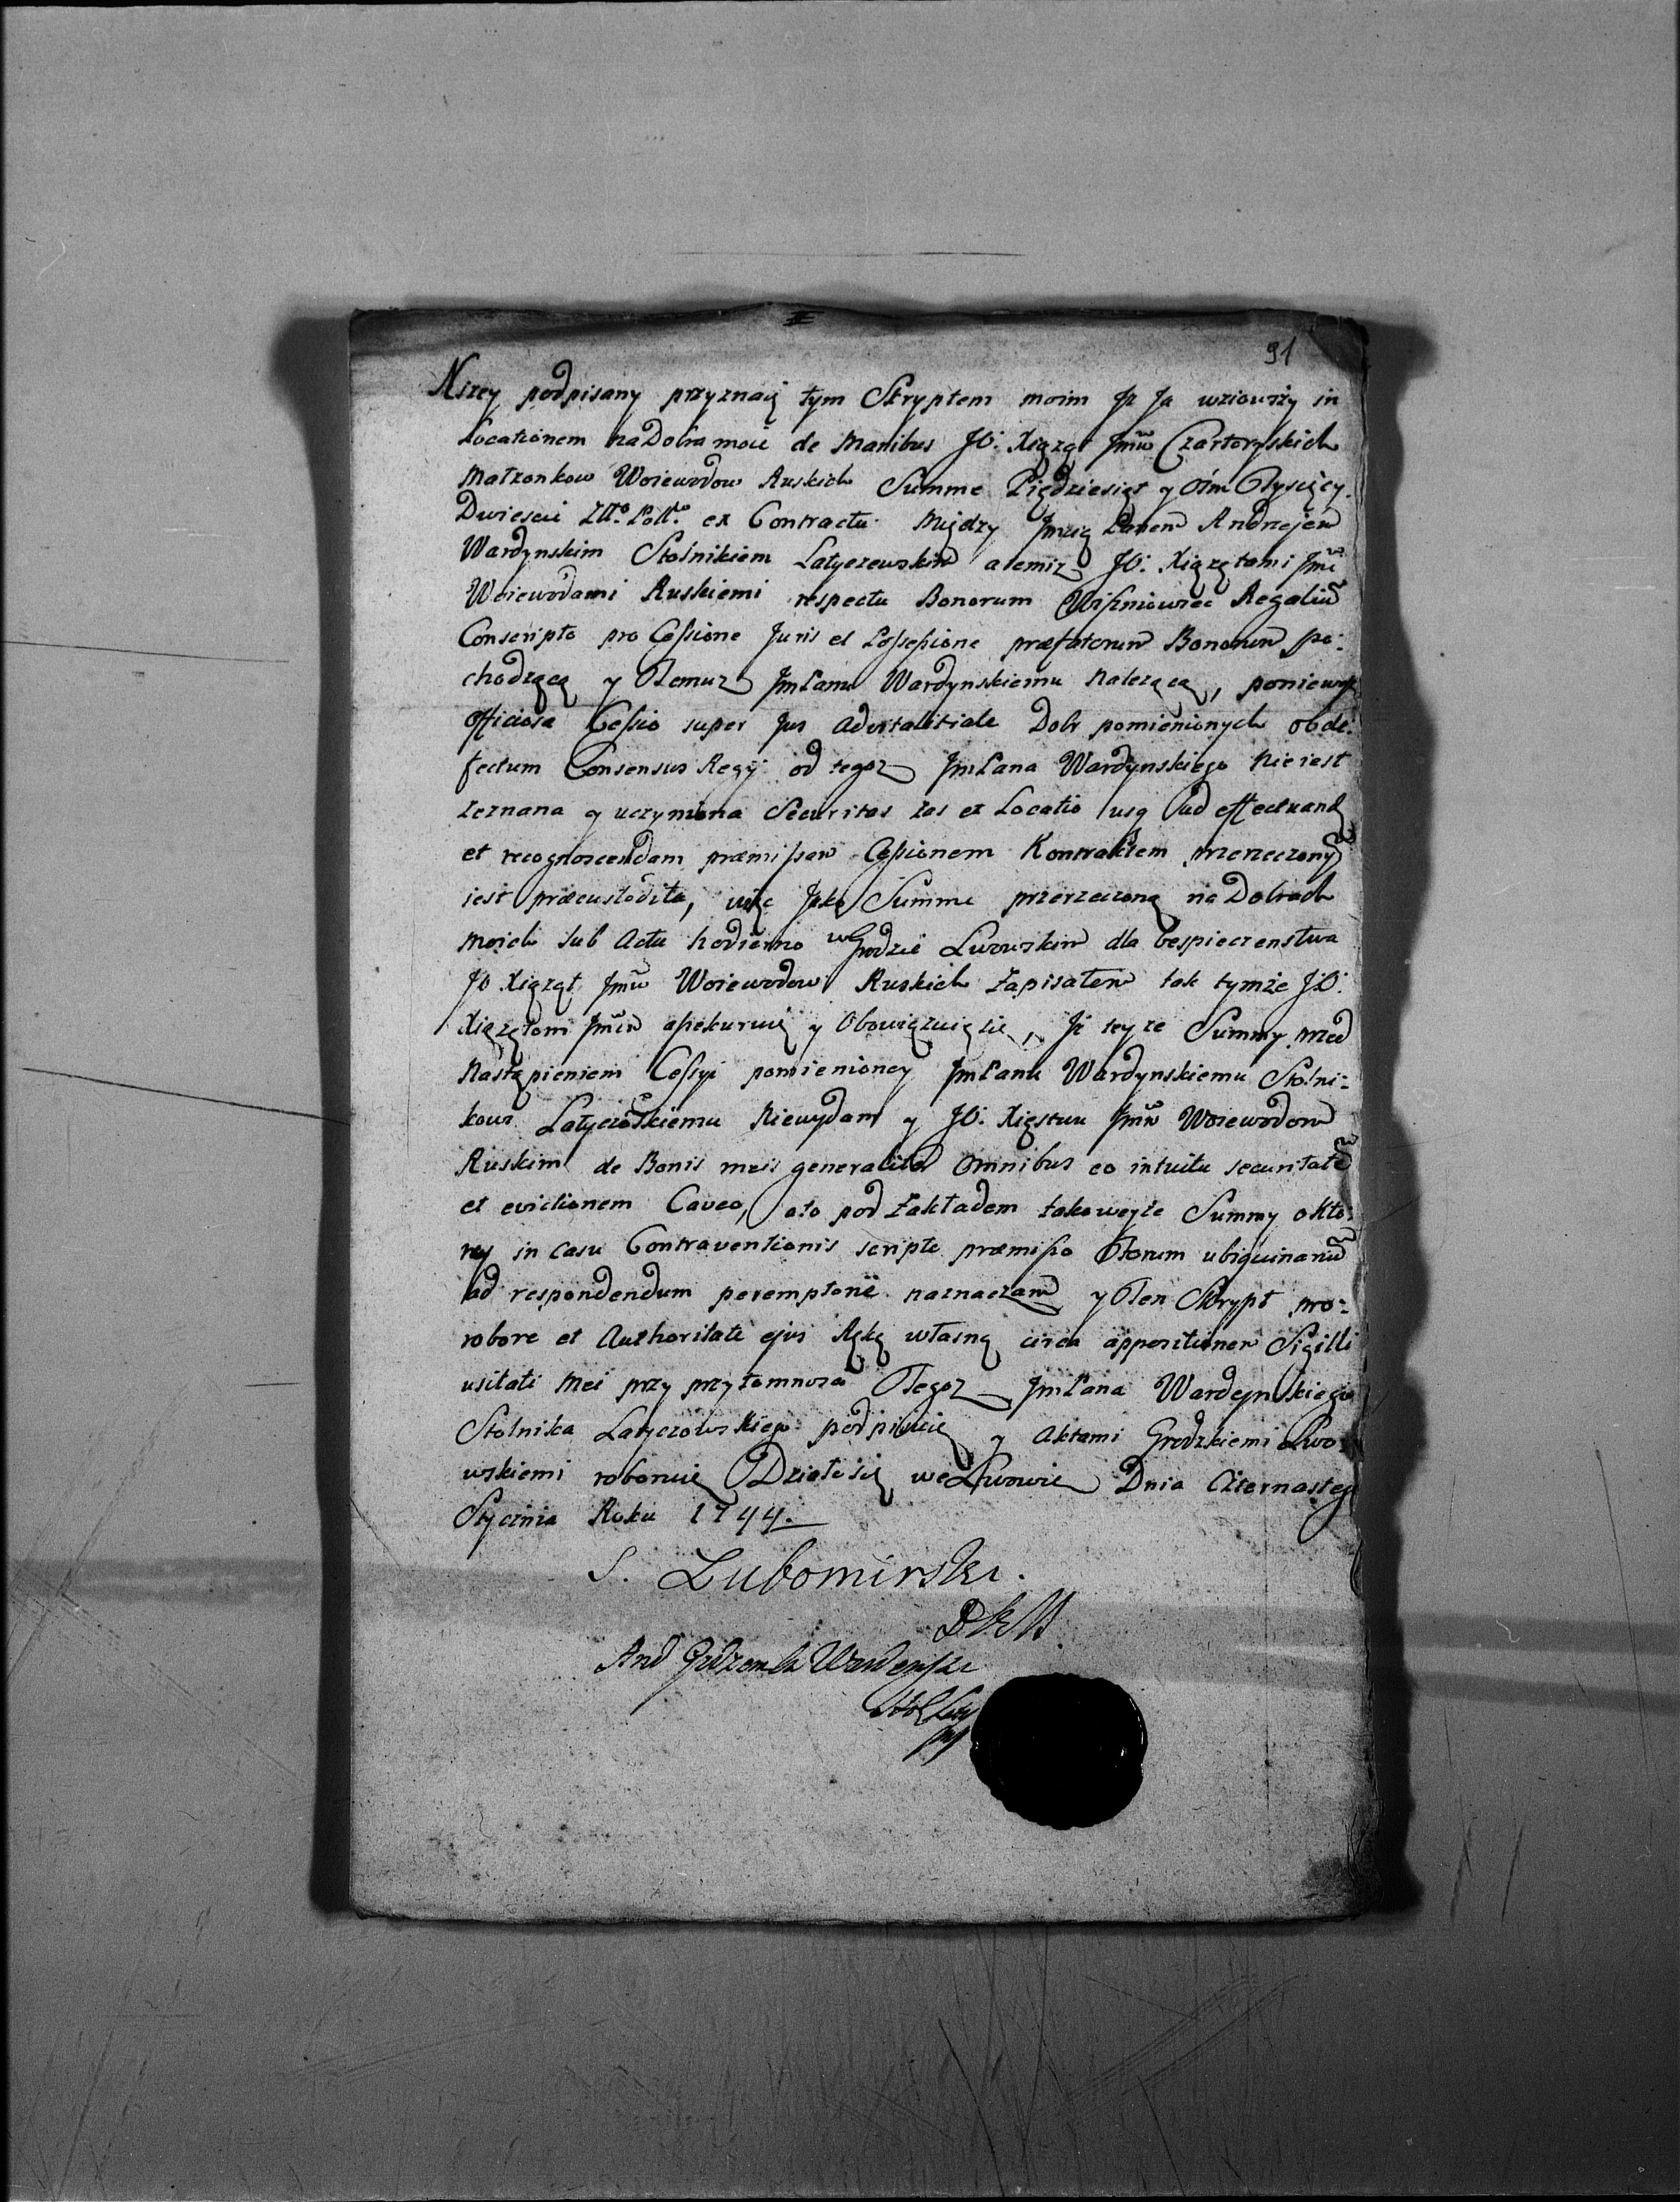 91
Nizey podpisany przyznaię tym Skryptem moim Iż Ja wziowszy in
Locationem na Dobra moie de Manibus JO. Xiąząt Jmćw Czartoryskich
Małzonkow Woiewodow Ruskich Summe Pięćdziesiąt y ośm Tysięcy
Dwieście Złł. Poll. ex Contractu Między Jmcią Panem Andrzejem
Wardynskim Stolnikiem Latyczewskim a temiz JO. Xiązętami Jmć
Woiewodami Ruskiemi respectu Bonorum Wiszniowiec Regaliũ
Conscripto pro Cessione Juris et Possessione præfatorum Bonorum po:
chodzącą y Temuz JmPanu Wardynskiemu Nalezącą, poniewaz
officiosa Cessio super Jus advitalitiale Dobr pomienionych ob de:
fectum Consensus Regij od tegoz JmPana Wardynskiego Nie iest
zeznana y uczyniona Securitas zas et Locatio usq ad effectuand
et recognoscendam præmissam Cessionem Kontraktem przerzeczonym
iest præcustodita, więc Jako Summe przerzeczoną na Dobrach
Moich sub Actu hodierno w Grodzie Lwowskim dla bespieczenstwa
JO Xiąząt Jmćw Woiewodow Ruskich Zapisałem tak tymże JO.
Xiązętom Jmćm assekuruię y Obowiązuię się, Iż teyze Summy przed
Nastąpieniem Cessyi pomienioney JmPanu Wardynskiemu Stolni:
kowi Latyczowskiemu Niewydam y JO. Xięstwu Jmćw Woiewodom
Ruskim de Bonis meis generaliter Omnibus eo intuitu securitatẽ
et evictionem Caveo, a to pod zakładem takoweyże Summy o kto:
rey in casu Contraventionis scripto præmisso Forum ubiquinariũ
ad respondendum peremptorie naznaczam y Ten Skrypt pro
robore et Authoritate ejus Ręką własną circa appositionem Sigilli
usitati Mei przy przytomnosci Tegoz JmPana Wardynskiego
Stolnika Latyczowskiego podpisuię y Aktami Grodzkiemi Lwo
wskiemi roboruię Działo się we Lwowie Dnia Czternastego
Stycznia Roku 1744.
S. Lubomirski.
And Wardynski
Stol Laty